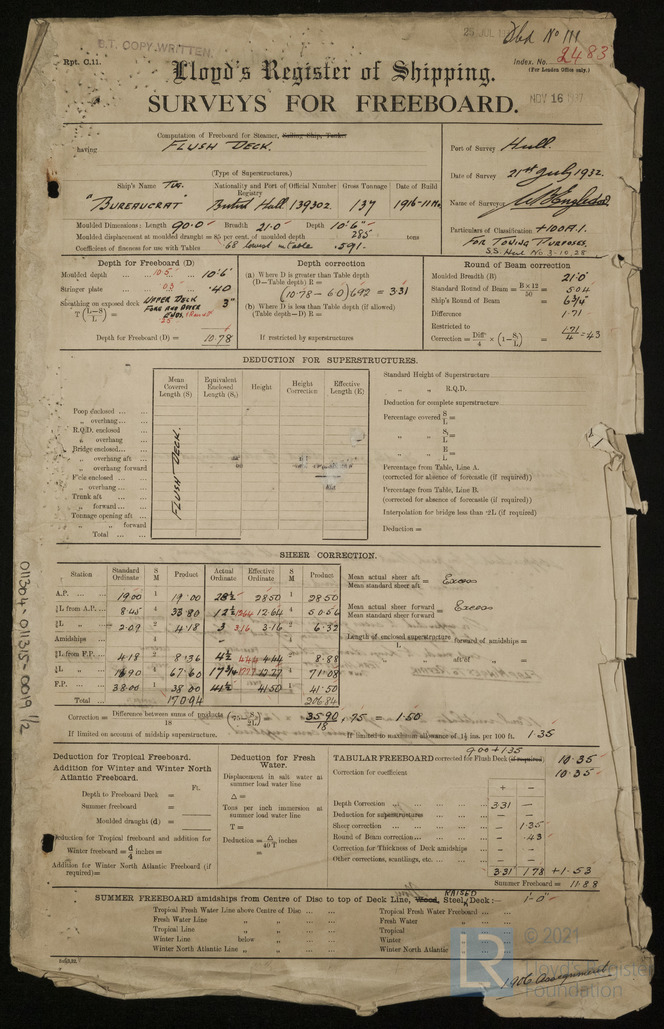 25 JUL
Dbd No
B.T. COPY WRITTEN.
Rpt. C.11.
Index. No. 2483
(For London Office only.)
Lloyd's Register of Shipping.
NOV 16
SURVEYS FOR FREEBOARD.
Computation of Freeboard for Steamer, Sailing Ship, Tanker
having FLUSH DECK.
(Type of Superstructures.)
Port of Survey Hull.
Date of Survey 21st July 1932.
Name of Surveyor
Particulars of Classification +100A.1.
FOR TOWING PURPOSES.
S.S. Hul No 3-10,28
Ship's Name Tug. Nationality and Port of Registry Official Number Gross Tonnage Date of Build
"BUREAUCRAT" British Hull. 139302. 137 1916-11
Moulded Dimensions: Length 90.0 Breadth 21.0 Depth 10'6"
Moulded displacement at moulded draught = 85 per cent. of moulded depth 285 tons
Coefficient of fineness for use with Tables .68 lowest in table .591
Depth for Freeboard (D)
Moulded depth ... 10.5 10'6"
Stringer plate ... .03 .40
Sheathing on exposed deck UPPER DECK FORE AND AFTER ENDS. 3"
T (L-S/L) =
Depth for Freeboard (D) = 10.78
Depth correction
(a) Where D is greater than Table depth
(D—Table depth) R =
(10.78 - 6.0) .692 = 3.31
(b) Where D is less than Table depth (if allowed)
(Table depth—D) R =
If restricted by superstructures
Round of Beam correction
Moulded Breadth (B) 21.0
Standard Round of Beam = B×12/50 = 5.04
Ship's Round of Beam = 6 3/4
Difference 1.71
Restricted to
Correction = Diff/4 × (1 - S/L) = 1.71/4 = .43
DEDUCTION FOR SUPERSTRUCTURES.
Mean Covered Length (S) Equivalent Enclosed Length (S₁) Height Height Correction Effective Length (E)
Poop enclosed ...
„ overhang ...
R.Q.D. enclosed
„ overhang
Bridge enclosed...
„ overhang aft ...
„ overhang forward
F'cle enclosed ...
„ overhang ...
Trunk aft ...
„ forward ...
Tonnage opening aft ...
„ „ forward
Total ...
FLUSH DECK.
Standard Height of Superstructure
„ „ R.Q.D.
Deduction for complete superstructure
Percentage covered S/L =
„ „ S₁/L =
„ „ E/L =
Percentage from Table, Line A.
(corrected for absence of forecastle (if required))
Percentage from Table, Line B.
(corrected for absence of forecastle (if required))
Interpolation for bridge less than ·2L (if required)
Deduction =
SHEER CORRECTION.
Station Standard Ordinate S M Product Actual Ordinate Effective Ordinate S M Product
A.P. ... 19.00 1 19.00 28½ 28.50 1 28.50
⅙L from A.P. ... 8.45 4 33.80 12½ 12.64 4 50.56
⅓L „ 2.09 2 4.18 3 3.16 3.16 2 6.32
Amidships 4 4
⅓L from F.P. ... 4.18 2 8.36 4½ 4.44 4.44 2 8.88
⅙L „ 16.90 4 67.60 17¾ 17.77 17.77 4 71.08
F.P. ... 38.00 1 38.00 41½ 41.50 1 41.50
Total ... 170.94 206.84
Mean actual sheer aft / Mean standard sheer aft = Excess
Mean actual sheer forward / Mean standard sheer forward = Excess
Length of enclosed superstructure / L forward of amidships =
„ aft of „ =
Correction = Difference between sums of products / 18 (·75 - S/2L) = 35.90/18 × .75 = 1.50
If limited on account of midship superstructure. If limited to maximum allowance of 1½ ins. per 100 ft. 1.35
Deduction for Tropical Freeboard.
Addition for Winter and Winter North Atlantic Freeboard.
Ft.
Depth to Freeboard Deck =
Summer freeboard =
Moulded draught (d) =
Deduction for Tropical freeboard and addition for Winter freeboard = d/4 inches =
Addition for Winter North Atlantic Freeboard (if required) =
Deduction for Fresh Water.
Displacement in salt water at summer load water line
Δ =
Tons per inch immersion at summer load water line
T =
Deduction = Δ/40 T inches
=
9.00 + 1.35
TABULAR FREEBOARD corrected for Flush Deck (if required) 10.35
Correction for coefficient 10.35
+ —
Depth Correction ... 3.31 —
Deduction for superstructures — —
Sheer correction ... — 1.35
Round of Beam correction ... — .43
Correction for Thickness of Deck amidships — —
Other corrections, scantlings, etc. ... — —
3.31 1.78 +1.53
Summer Freeboard = 11.88
SUMMER FREEBOARD amidships from Centre of Disc to top of Deck Line, Wood, Steel, RAISED Deck:— 1'-0"
Tropical Fresh Water Line above Centre of Disc ...
Fresh Water Line „ „
Tropical Line „ „
Winter Line below „
Winter North Atlantic Line „ „
Tropical Fresh Water Freeboard ...
Fresh Water „
Tropical „
Winter „
Winter North Atlantic „
1906 Assignment
011304-011315-0019 1/2
LR
© 2021
Lloyd's Register
Foundation